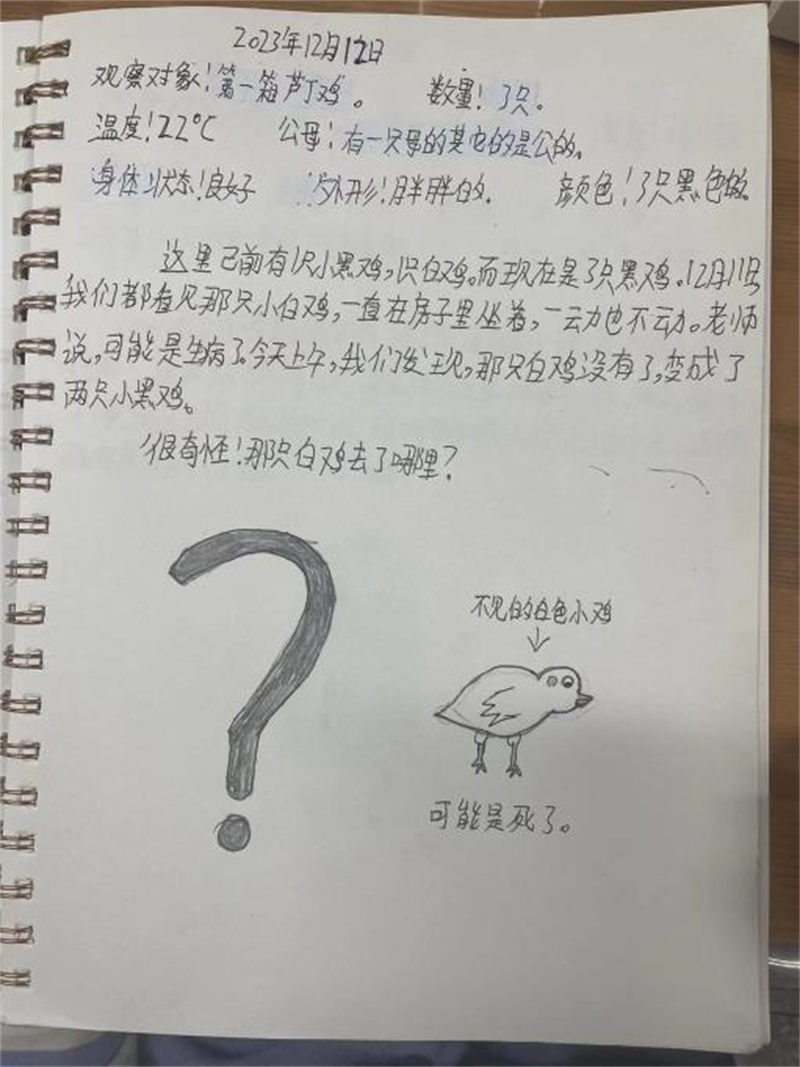 2023年12月12日
观察对象!第一箱芦丁鸡。 数量!3只。
温度!22°C 公母!有一只母的其它的是公的。
身体状态!良好 外形!胖胖的. 颜色!3只黑色的.
这里己前有1只小黑鸡,1只白鸡。而现在是3只黑鸡。12月11日
我们都看见那只小白鸡,一直在房子里坐着,一动也不动。老师
说,可能是生病了。今天上午,我们发现,那只白鸡没有了,变成了
两只小黑鸡。
很奇怪!那只白鸡去了哪里?
不见的白色小鸡
可能是死了。